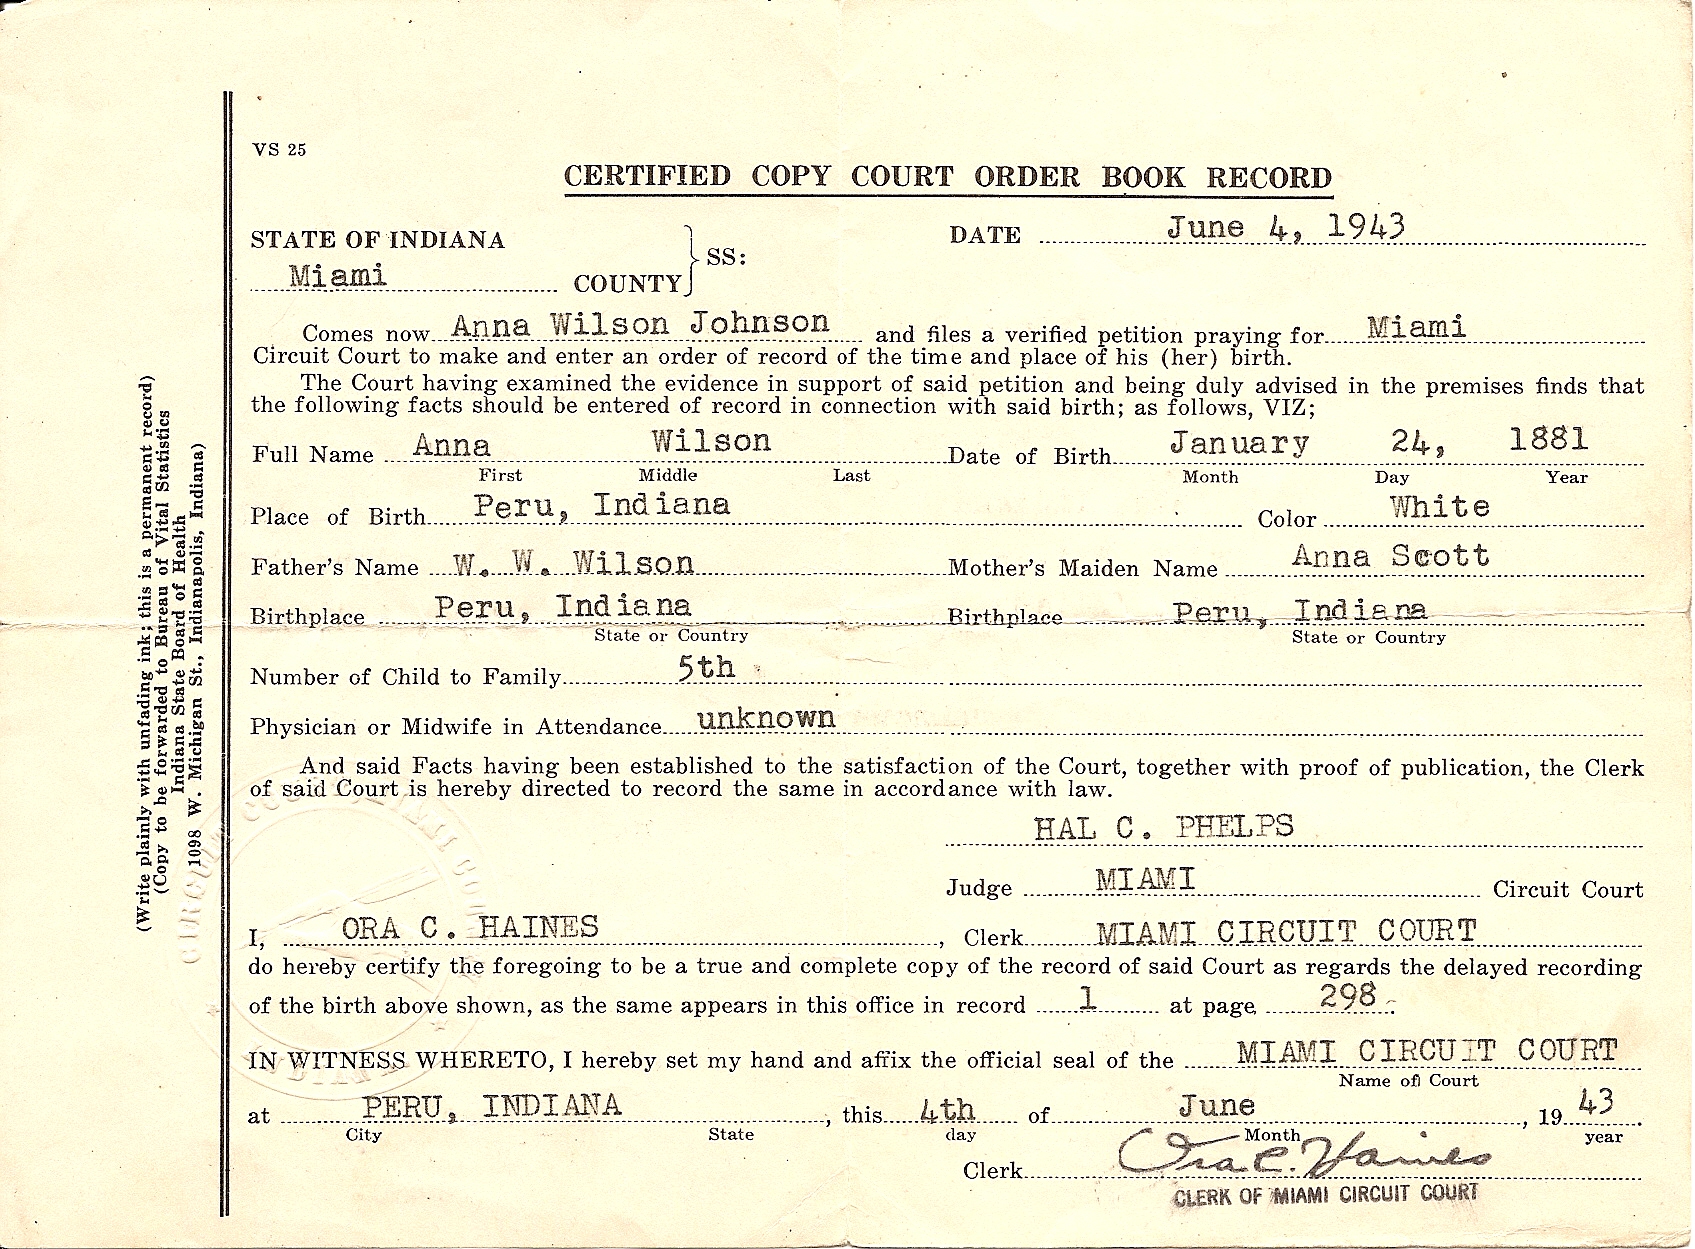 VS 25
CERTIFIED COPY COURT ORDER BOOK RECORD
STATE OF INDIANA
DATE June 4, 1943
SS:
Miami COUNTY
Comes now Anna Wilson Johnson and files a verified petition praying for Miami
Circuit Court to make and enter an order of record of the time and place of his (her) birth.
The Court having examined the evidence in support of said petition and being duly advised in the premises finds that
the following facts should be entered of record in connection with said birth; as follows, VIZ;
Full Name Anna Wilson Date of Birth January 24, 1881
First Middle Last Month Day Year
Place of Birth Peru, Indiana Color White
Father's Name W. W. Wilson Mother's Maiden Name Anna Scott
Birthplace Peru, Indiana Birthplace Peru, Indiana
State or Country State or Country
Number of Child to Family 5th
Physician or Midwife in Attendance unknown
And said Facts having been established to the satisfaction of the Court, together with proof of publication, the Clerk
of said Court is hereby directed to record the same in accordance with law.
HAL C. PHELPS
Judge MIAMI Circuit Court
I, ORA C. HAINES, Clerk MIAMI CIRCUIT COURT
do hereby certify the foregoing to be a true and complete copy of the record of said Court as regards the delayed recording
of the birth above shown, as the same appears in this office in record 1 at page 298
IN WITNESS WHERETO, I hereby set my hand and affix the official seal of the MIAMI CIRCUIT COURT
Name of Court
at PERU, INDIANA, this 4th of June, 1943.
City State day Month year
Clerk Ora C. Haines
CLERK OF MIAMI CIRCUIT COURT
(Write plainly with unfading ink; this is a permanent record)
(Copy to be forwarded to Bureau of Vital Statistics
Indiana State Board of Health
1098 W. Michigan St., Indianapolis, Indiana)